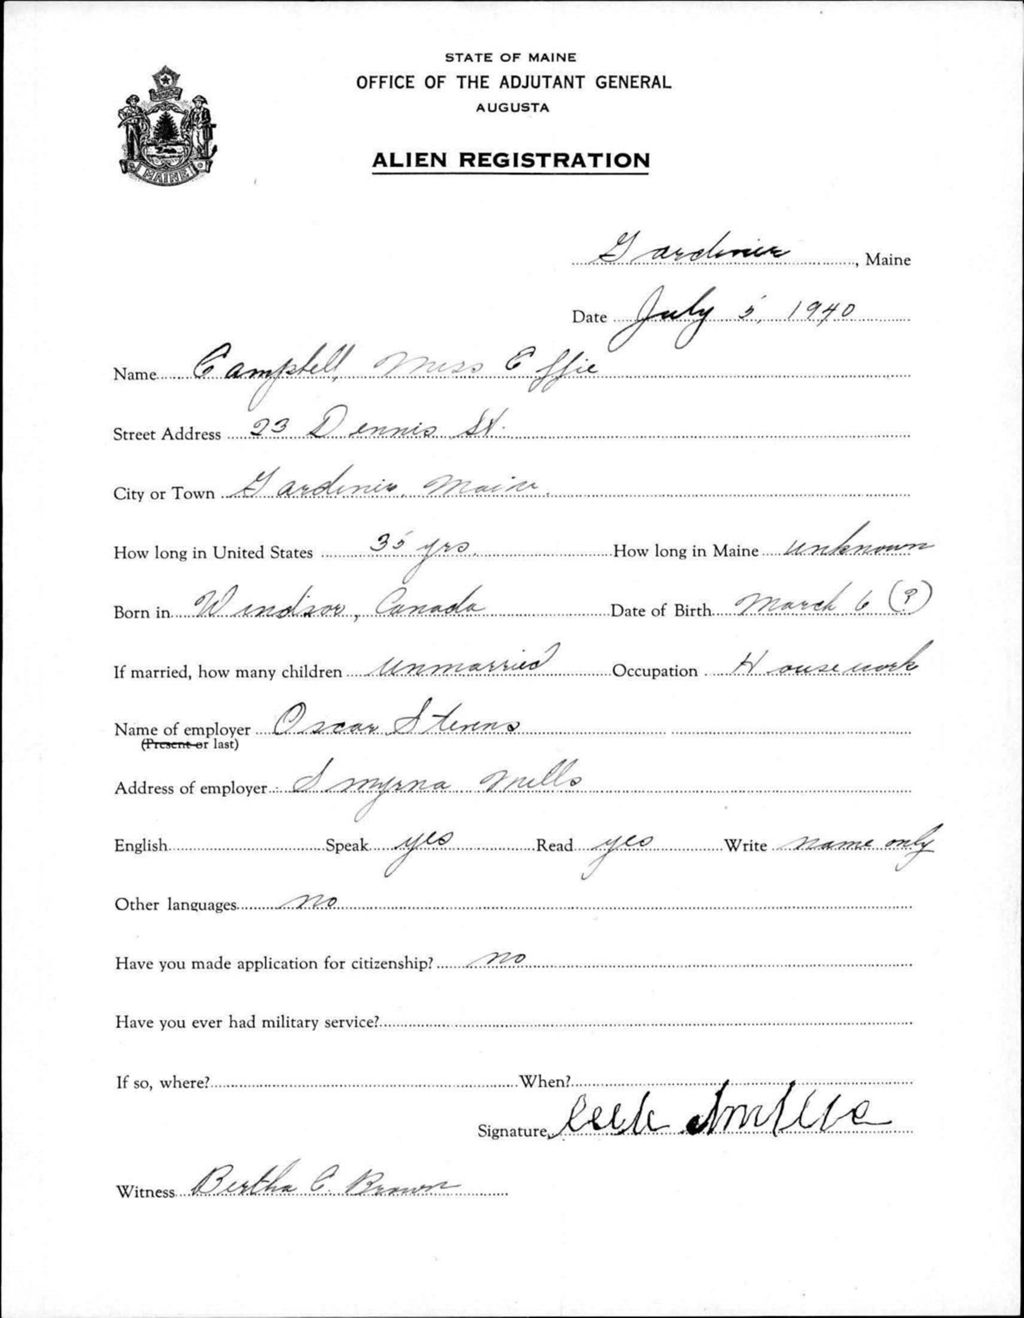 STATE OF MAINE
OFFICE OF THE ADJUTANT GENERAL
AUGUSTA
MAINE
ALIEN REGISTRATION
Gardiner, Maine
Date July 5, 1940
Name Campbell, Miss Effie
Street Address 23 Dennis St.
City or Town Gardiner, Maine.
How long in United States 35 yrs. How long in Maine unknown
Born in Windsor, Canada Date of Birth March 6 (?)
If married, how many children unmarried Occupation Housework
Name of employer Oscar Stevens
(Present or last)
Address of employer Smyrna Mills
English Speak yes Read yes Write name only
Other languages no
Have you made application for citizenship? no
Have you ever had military service?
If so, where? When?
Signature
Witness Bertha C. Brown